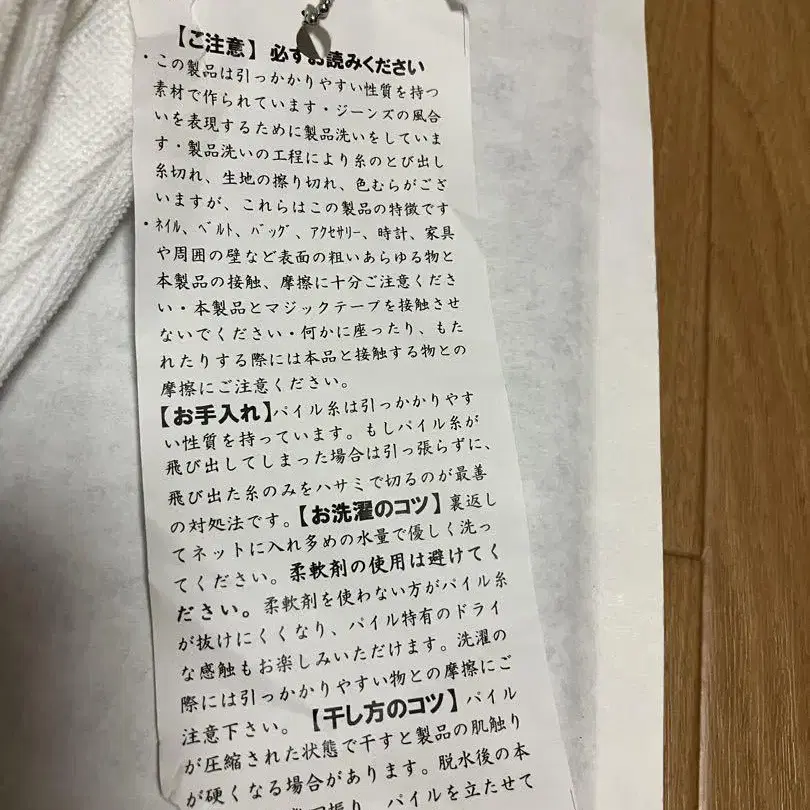 【ご注意】 必ずお読みください
・この製品は引っかかりやすい性質を持つ
素材で作られています・ジーンズの風合
いを表現するために製品洗いをしていま
す・製品洗いの工程により糸のとび出し
糸切れ、生地の擦り切れ、色むらがござ
いますが、これらはこの製品の特徴です
・ﾈｲﾙ、ﾍﾞﾙﾄ、ﾊﾞｯｸﾞ、ｱｸｾｻﾘｰ、時計、家具
や周囲の壁など表面の粗いあらゆる物と
本製品の接触、摩擦に十分ご注意くださ
い・本製品とマジックテープを接触させ
ないでください・何かに座ったり、もた
れたりする際には本品と接触する物との
摩擦にご注意ください。
【お手入れ】パイル糸は引っかかりやす
い性質を持っています。もしパイル糸が
飛び出してしまった場合は引っ張らずに、
飛び出た糸のみをハサミで切るのが最善
の対処法です。【お洗濯のコツ】裏返し
てネットに入れ多めの水量で優しく洗っ
てください。柔軟剤の使用は避けてく
ださい。柔軟剤を使わない方がパイル糸
が抜けにくくなり、パイル特有のドライ
な感触もお楽しみいただけます。洗濯の
際には引っかかりやすい物との摩擦にご
注意下さい。【干し方のコツ】パイル
が圧縮された状態で干すと製品の肌触り
が硬くなる場合があります。脱水後の本
振り、パイルを立たせて